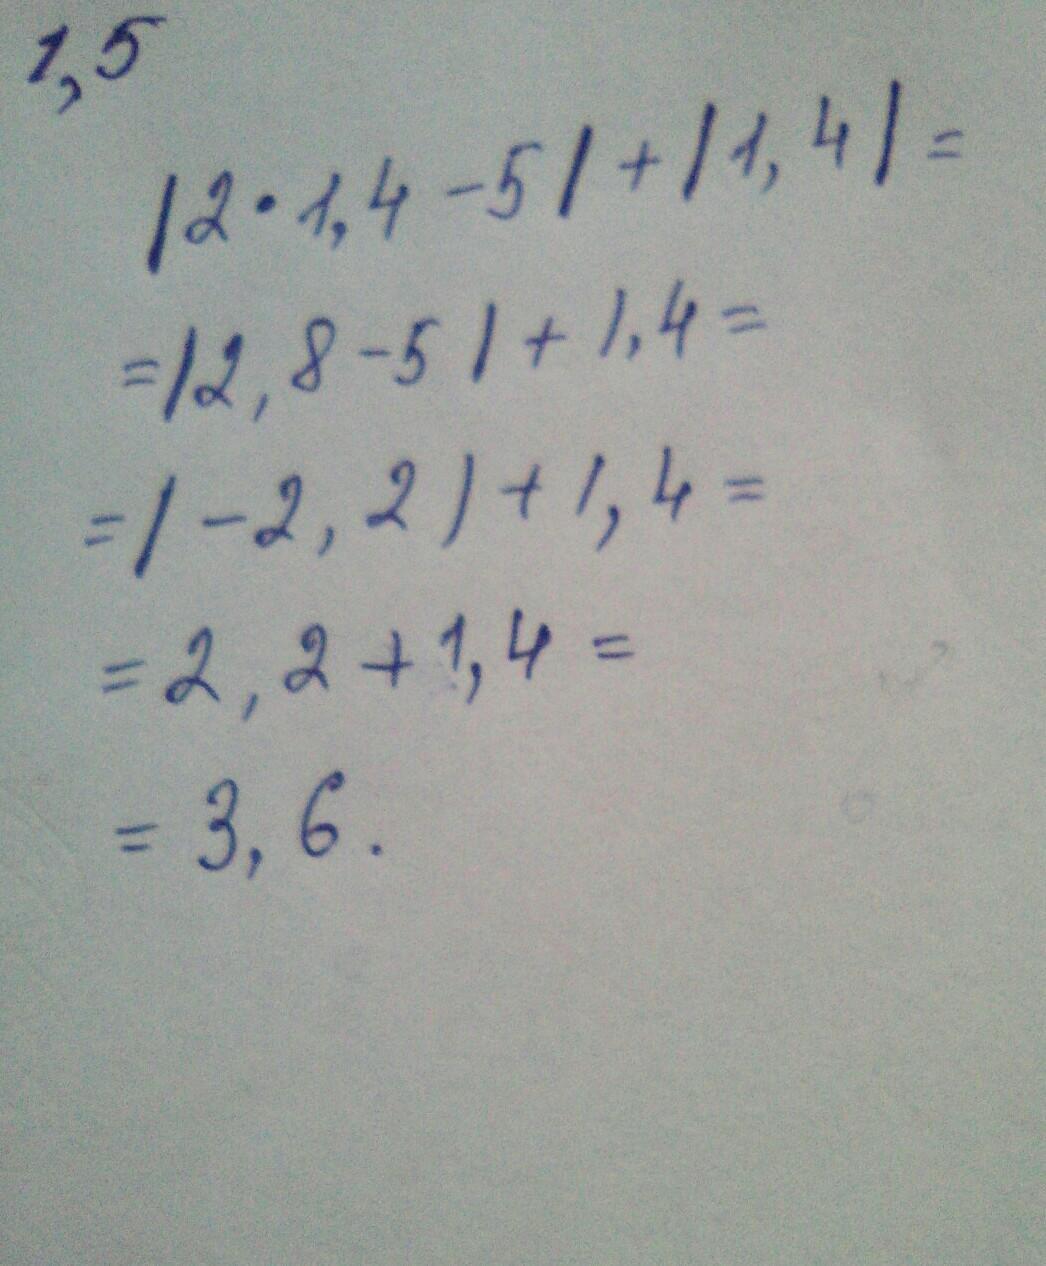 1,5
|2·1,4-5|+|1,4|=
=|2,8-5|+1,4=
=|-2,2|+1,4=
=2,2+1,4=
=3,6.